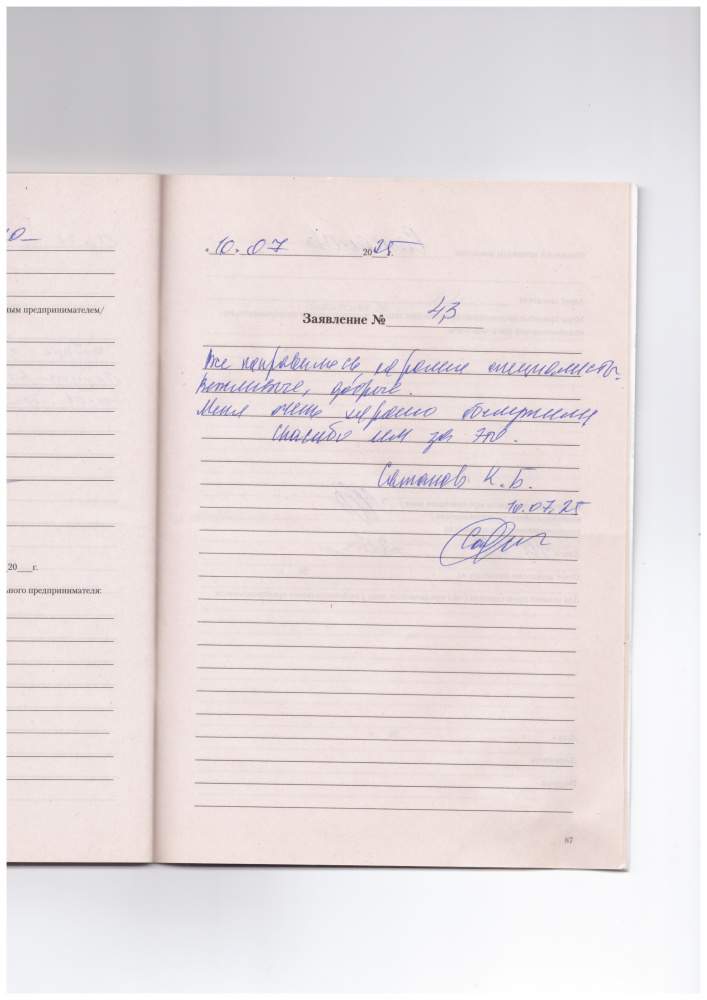 "10" 07 2025 г.
ным предпринимателем/
Заявление № 43
Все понравилось хорошие специалисты.
Вежливые, добрые.
Меня очень хорошо обслужили
спасибо им за это.
К.Б.
10.07.25
20 г.
ьного предпринимателя:
87